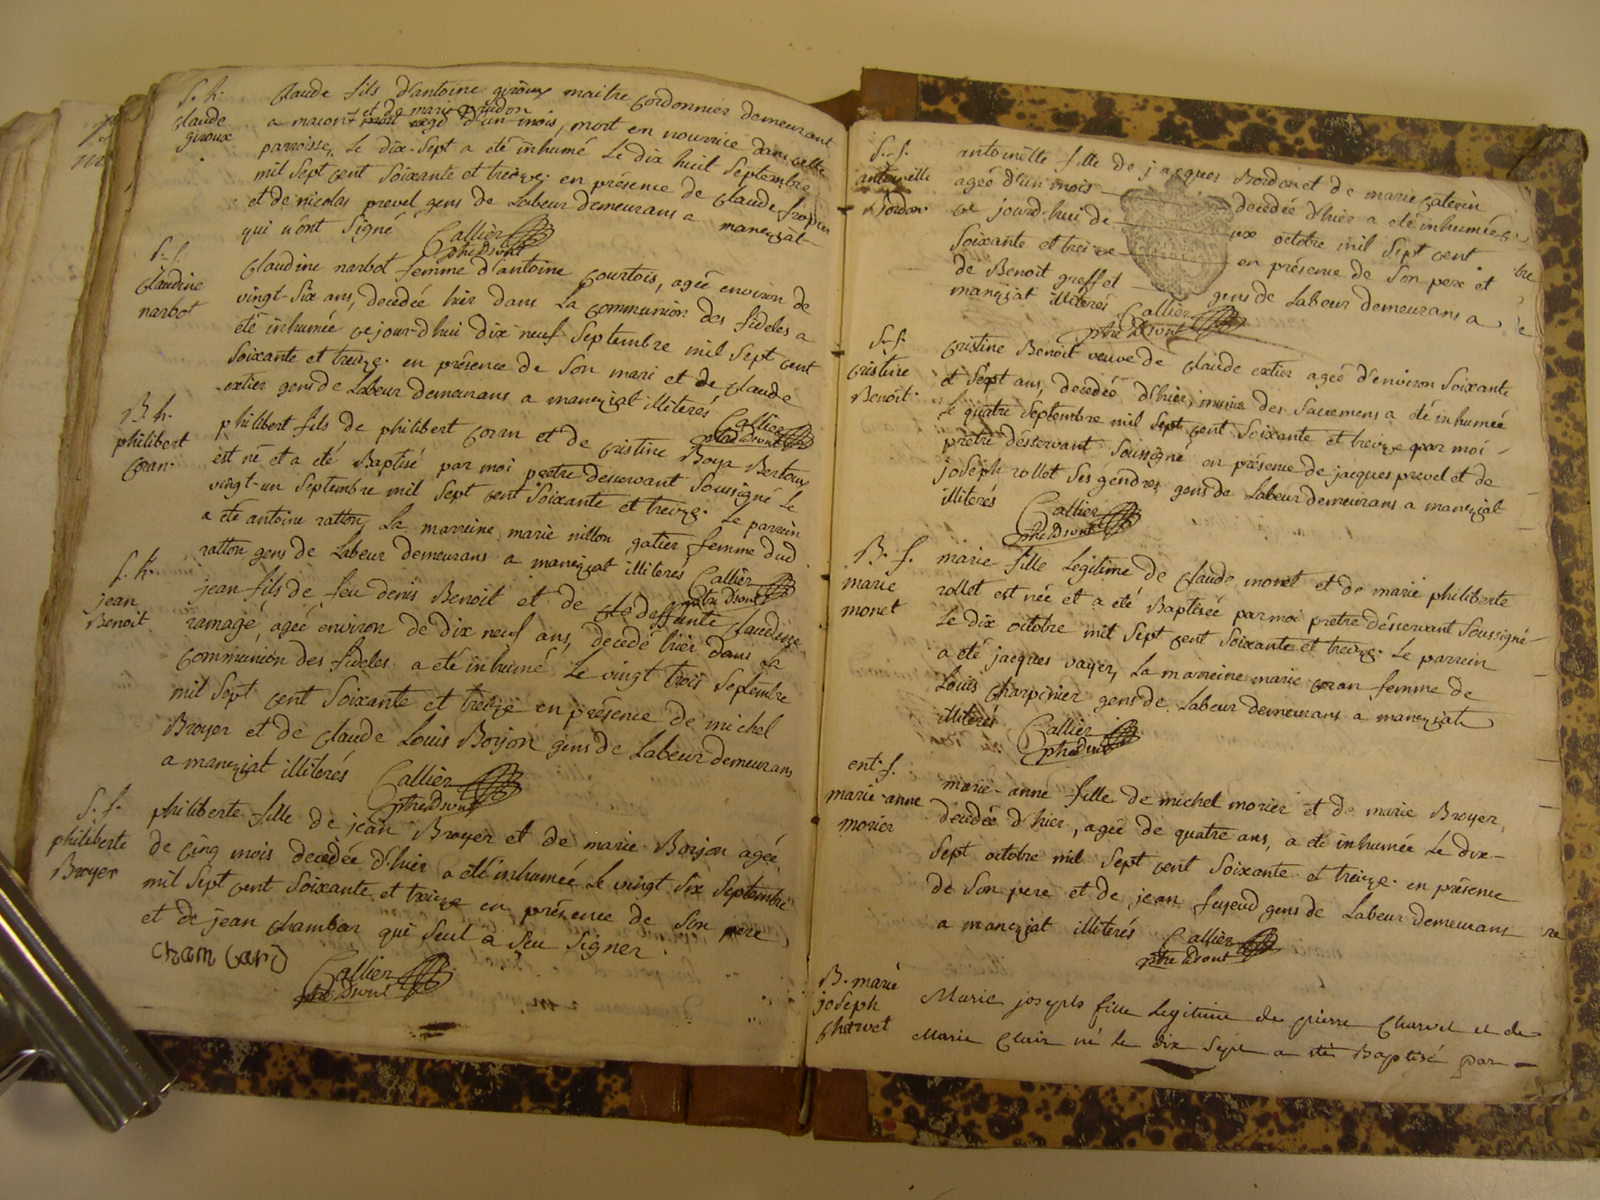 S. h.
claude
giroux
Claude fils d'antoine giroux maitre Cordonnier demeurant
et de marie
a macon agé d'un mois, mort en nourrice dans cette
parroisse, le dix-Sept a été inhumé le dix huit Septembre
mil Sept cent Soixante et treize. en présence de Claude
et de nicolas prevel gens de Labeur demeurans a maneziat
qui n'ont Signé Callier
ptre Dsvnt
S. f.
Claudine
narbot
Claudine narbot femme d'antoine Courtois, agée environ de
vingt-Six ans, decedée hier dans la communion des fideles a
été inhumée ce jour-d'hui dix neuf Septembre mil Sept cent
Soixante et treize. en présence de Son mari et de Claude
extier gens de Labeur demeurans a maneziat illiterés
Callier
ptre Dsvnt
B. h.
philibert
Coran
philibert fils de philibert Coran et de cristine Boya Bertoux
est né et a été Baptisé par moi pretre desservant Soussigné le
vingt-un Septembre mil Sept cent Soixante et treize. Le parrein
a été antoine ratton, La marreine marie nillon gatier femme dud
ratton gens de Labeur demeurans a maneziat illiterés Callier
ptre Dsvnt
S. h.
jean
Benoit
jean fils de feu denis Benoit et de deffunte Claudine
ramagé, agée environ de dix neuf ans, decedé hier dans la
Communion des fideles a été inhumé le vingt trois Septembre
mil Sept cent Soixante et treize en présence de michel
Broyer et de Claude Louis Borjon gens de Labeur demeurans
a maneziat illiterés Callier
ptre Dsvnt
S. f.
philiberte
Broyer
philiberte fille de jean Broyer et de marie Borjon agée
de cinq mois decedée d'hier a été inhumée le vingt Six Septembre
mil Sept cent Soixante et treize en présence de Son pere
et de jean chambar qui Seul a Seu Signer
Callier
ptre Dsvnt
S. f.
antoinette
Bordon
antoinette fille de jacques Bordon et de marie
ageé d'un mois decedée d'hier a été inhumée
ce jourd-hui de octobre mil Sept cent
Soixante et treize en présence de Son pere et
de Benoit greffet gens de Labeur demeurans a
maneziat illiterés Callier
ptre Dsvnt
S. f.
Cristine
Benoit
Cristine Benoit veuve de Claude extier ageé d'environ Soixante
et Sept ans, decedée d'hier, munie des Sacremens a été inhumée
le quatre Septembre mil Sept cent Soixante et treize par moi
prêtre désservant Soussigné en présence de jacques prevel et de
joSeph rollet Ses gendres gens de Labeur demeurans a maneziat
illiterés Callier
ptre Dsvnt
B. f.
marie
monet
marie fille Legitime de Claude monet et de marie philiberte
rollet est née et a été Baptisée par moi pretre désservant Soussigné
Le dix octobre mil Sept cent Soixante et treize. Le parrein
a été jacques vayer, La marreine marie coran femme de
Louis Charpinier gens de Labeur demeurans a maneziat
illiterés Callier
ptre Dsvnt
ent. f.
marie-anne
morier
marie-anne fille de michel morier et de marie Broyer,
decedée d'hier, agée de quatre ans, a été inhumée Le dix-
Sept octobre mil Sept cent Soixante et treize. en présence
de Son pere et de jean gens de Labeur demeurans
a maneziat illiterés Callier
ptre dsvnt
B. marie
joSeph
Charvet
Marie josephs fille legitime de pierre Charvet et de
Marie Clair né le dix Sept a été Baptisé par